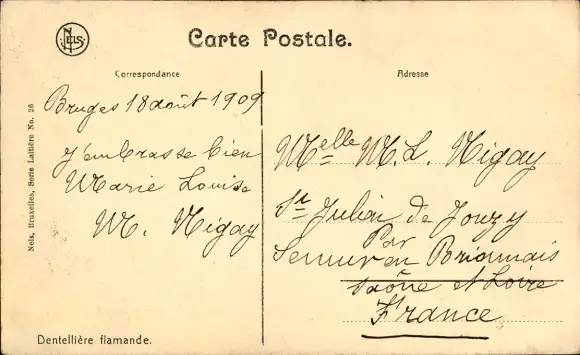 NELS
Carte Postale.
Correspondance
Adresse
Bruges 18 août 1909
j'embrasse bien
Marie Louise
M. Nigay
Melle M. L. Nigay
St Julien de Jonzy
Par
Semur en Brionnais
Saône et Loire
France
Nels, Bruxelles, Serie Laitière No. 26
Dentellière flamande.